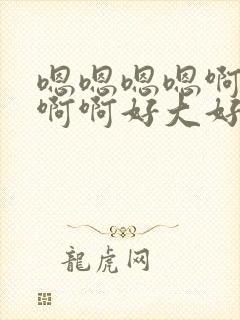 嗯嗯嗯嗯啊
啊啊好大好
龍虎网